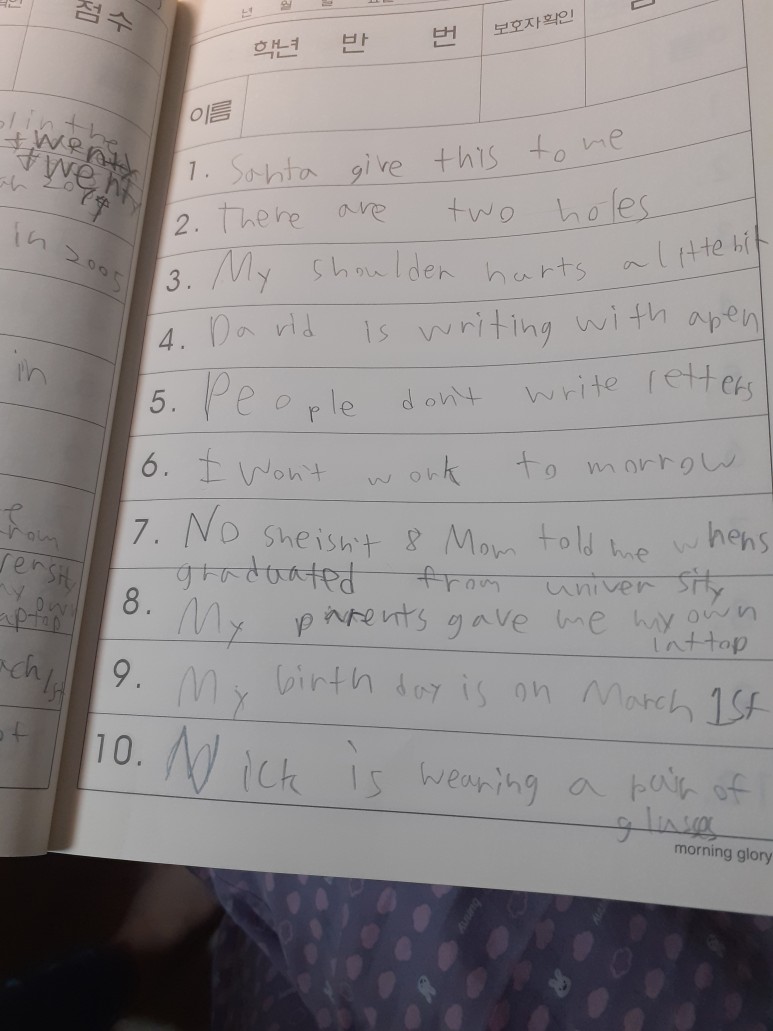 점수
년 월 일 요일
학년 반 번
보호자확인
이름
lin the
twenty
twenty
2019
in 2005
in
from
versity
my own
aptop
ach 1st
of
1. Santa give this to me
2. There are two holes
3. My shoulder harts a litte bit
4. David is writing with apen
5. People don't write letters
6. I won't work to morrow
7. No she isn't & Mom told me whens
graduated from univer sity
8. My parents gave me my own
lattop
9. My birth day is on March 1st
10. Nick is wearing a pair of
glases
morning glory
bunny